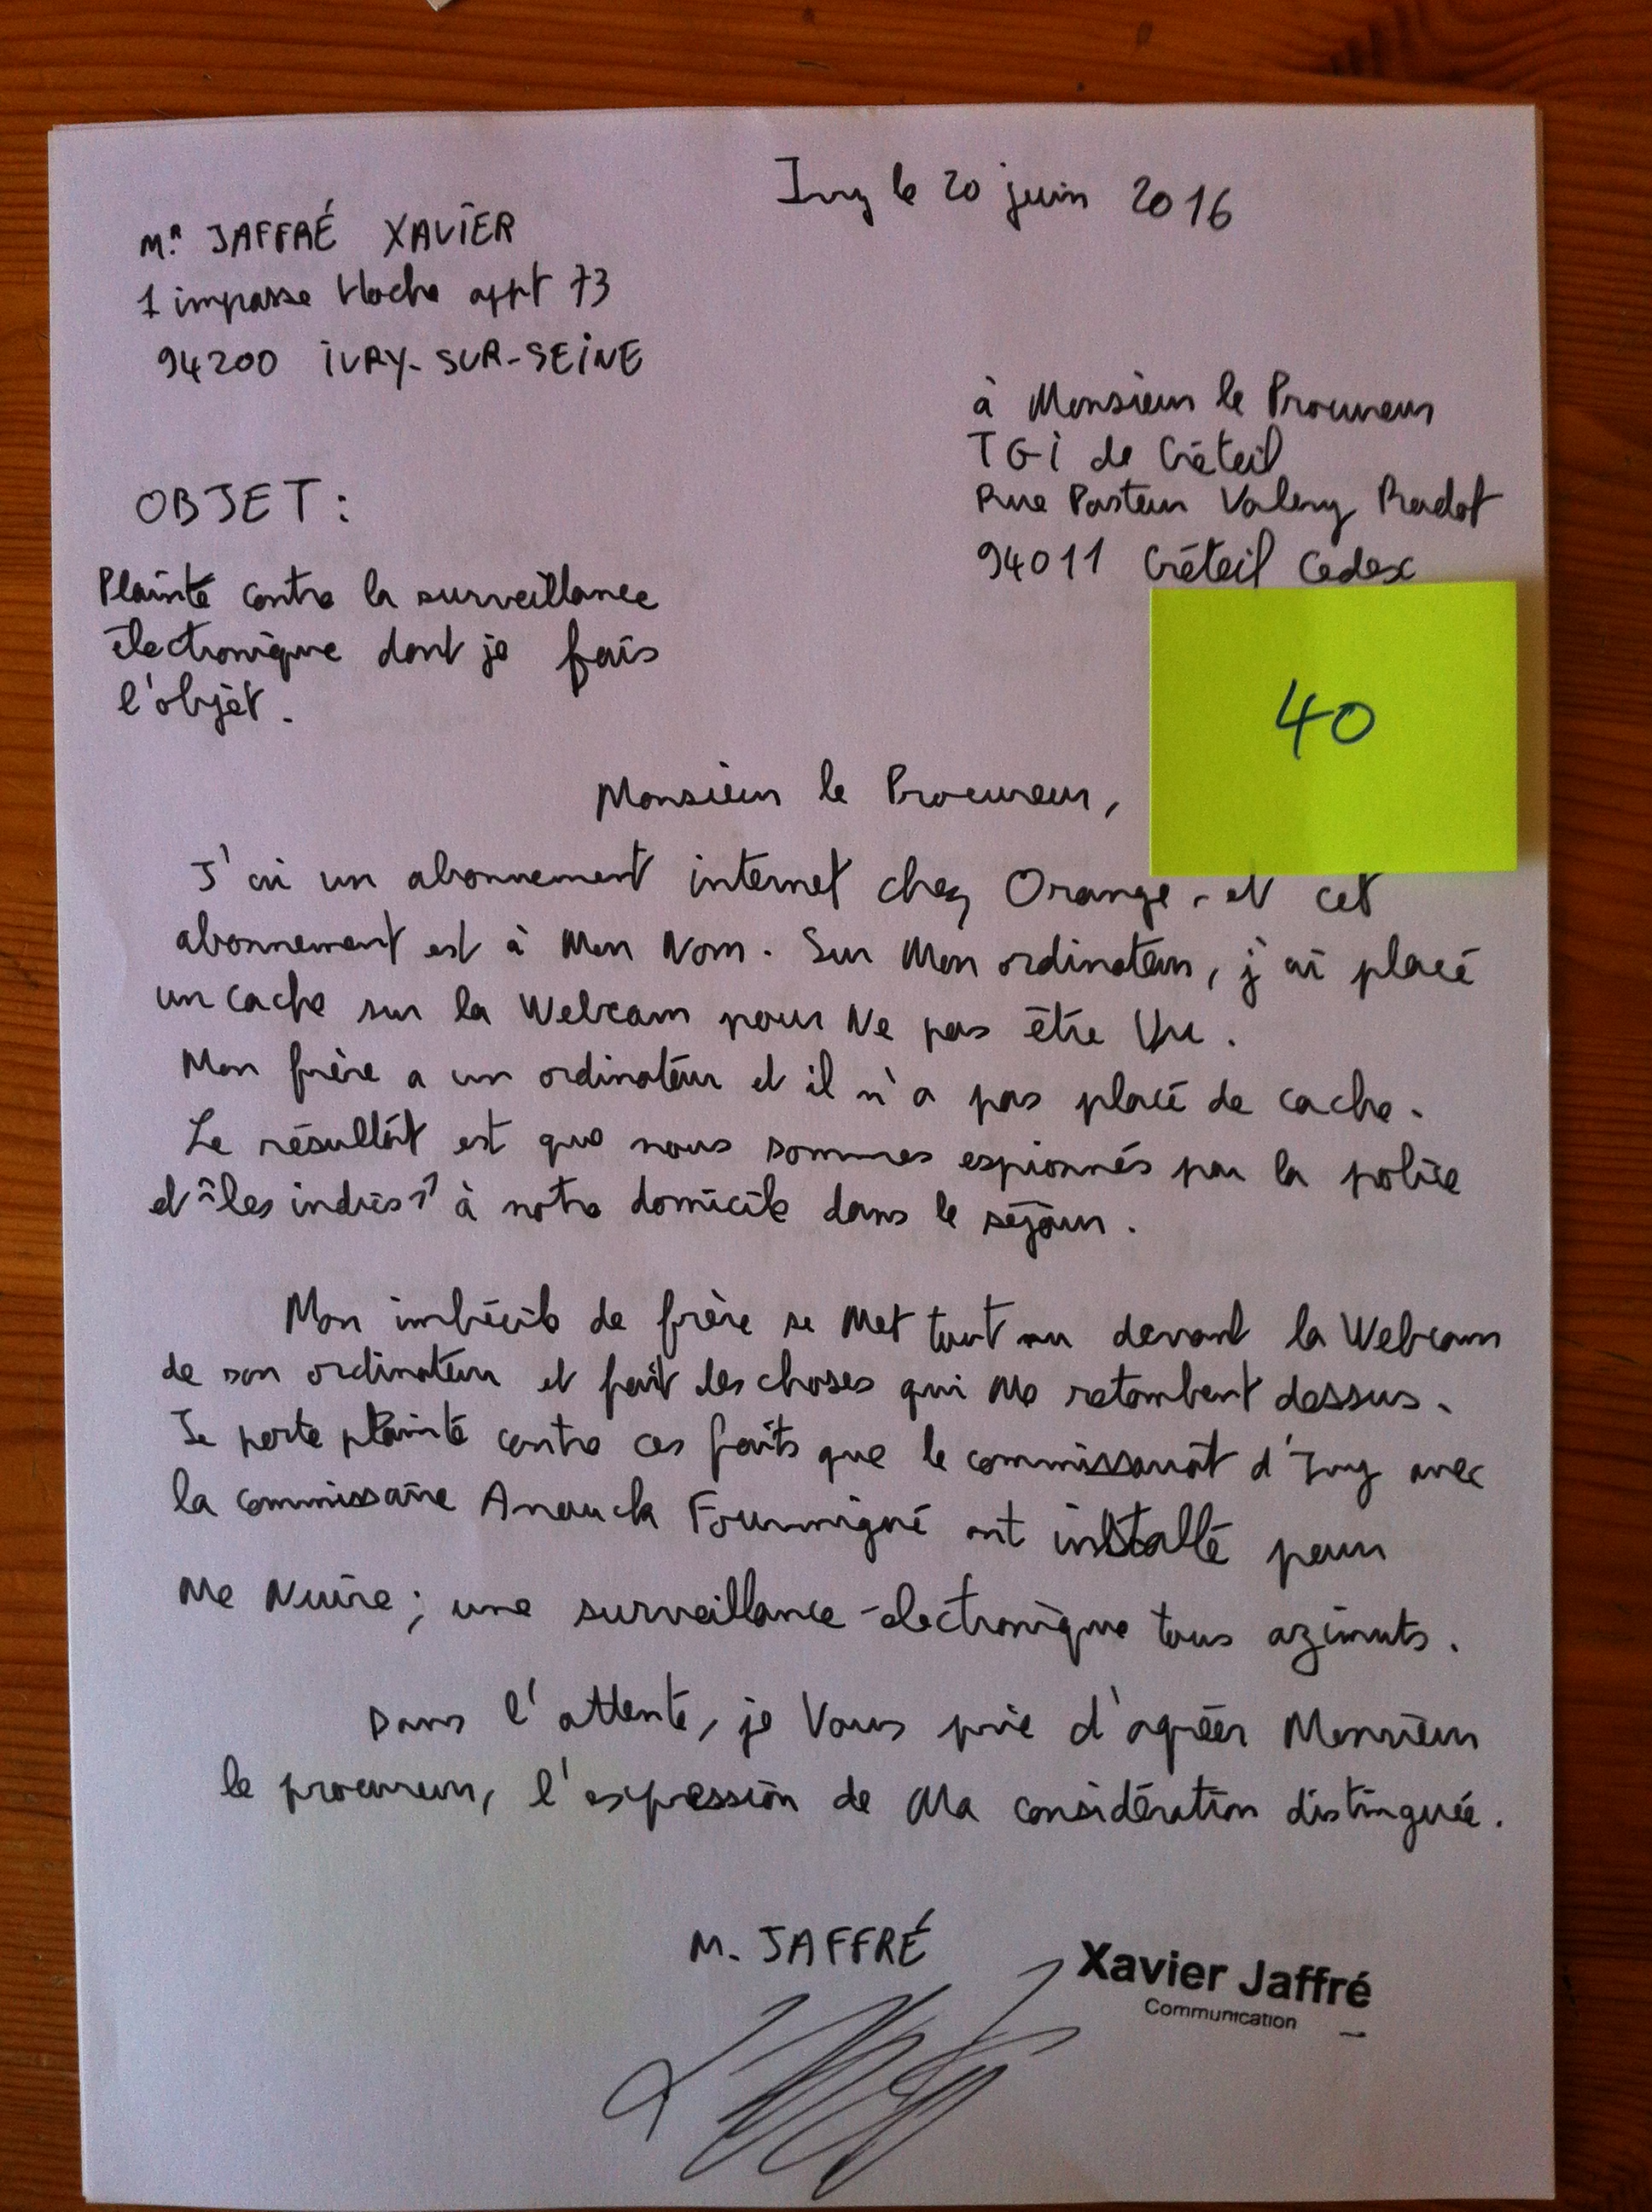 Ivry le 20 juin 2016
Mr JAFFRÉ XAVIER
1 impasse Hoche appt 73
94200 IVRY-SUR-SEINE
à Monsieur le Procureur
TGI de Créteil
Rue Pasteur Valery Radot
94011 Créteil Cedex
OBJET :
Plainte contre la surveillance
électronique dont je fais
l'objet.
40
Monsieur le Procureur,
J'ai un abonnement internet chez Orange - et cet
abonnement est à Mon Nom. Sur Mon ordinateur, j'ai placé
un cache sur la Webcam pour Ne pas être Vu.
Mon frère a un ordinateur et il n'a pas placé de cache.
Le résultat est que nous sommes espionnés par la police
et "les indics" à notre domicile dans le séjour.
Mon imbécile de frère se Met tout nu devant la Webcam
de son ordinateur et fait des choses qui Me retombent dessus.
Je porte plainte contre ces faits que le commissariat d'Ivry avec
la commissaire Anouck Fourmigué ont installé pour
Me Nuire ; une surveillance électronique tous azimuts.
Dans l'attente, je Vous prie d'agréer Monsieur
le procureur, l'expression de Ma considération distinguée.
M. JAFFRÉ
Xavier Jaffré
Communication